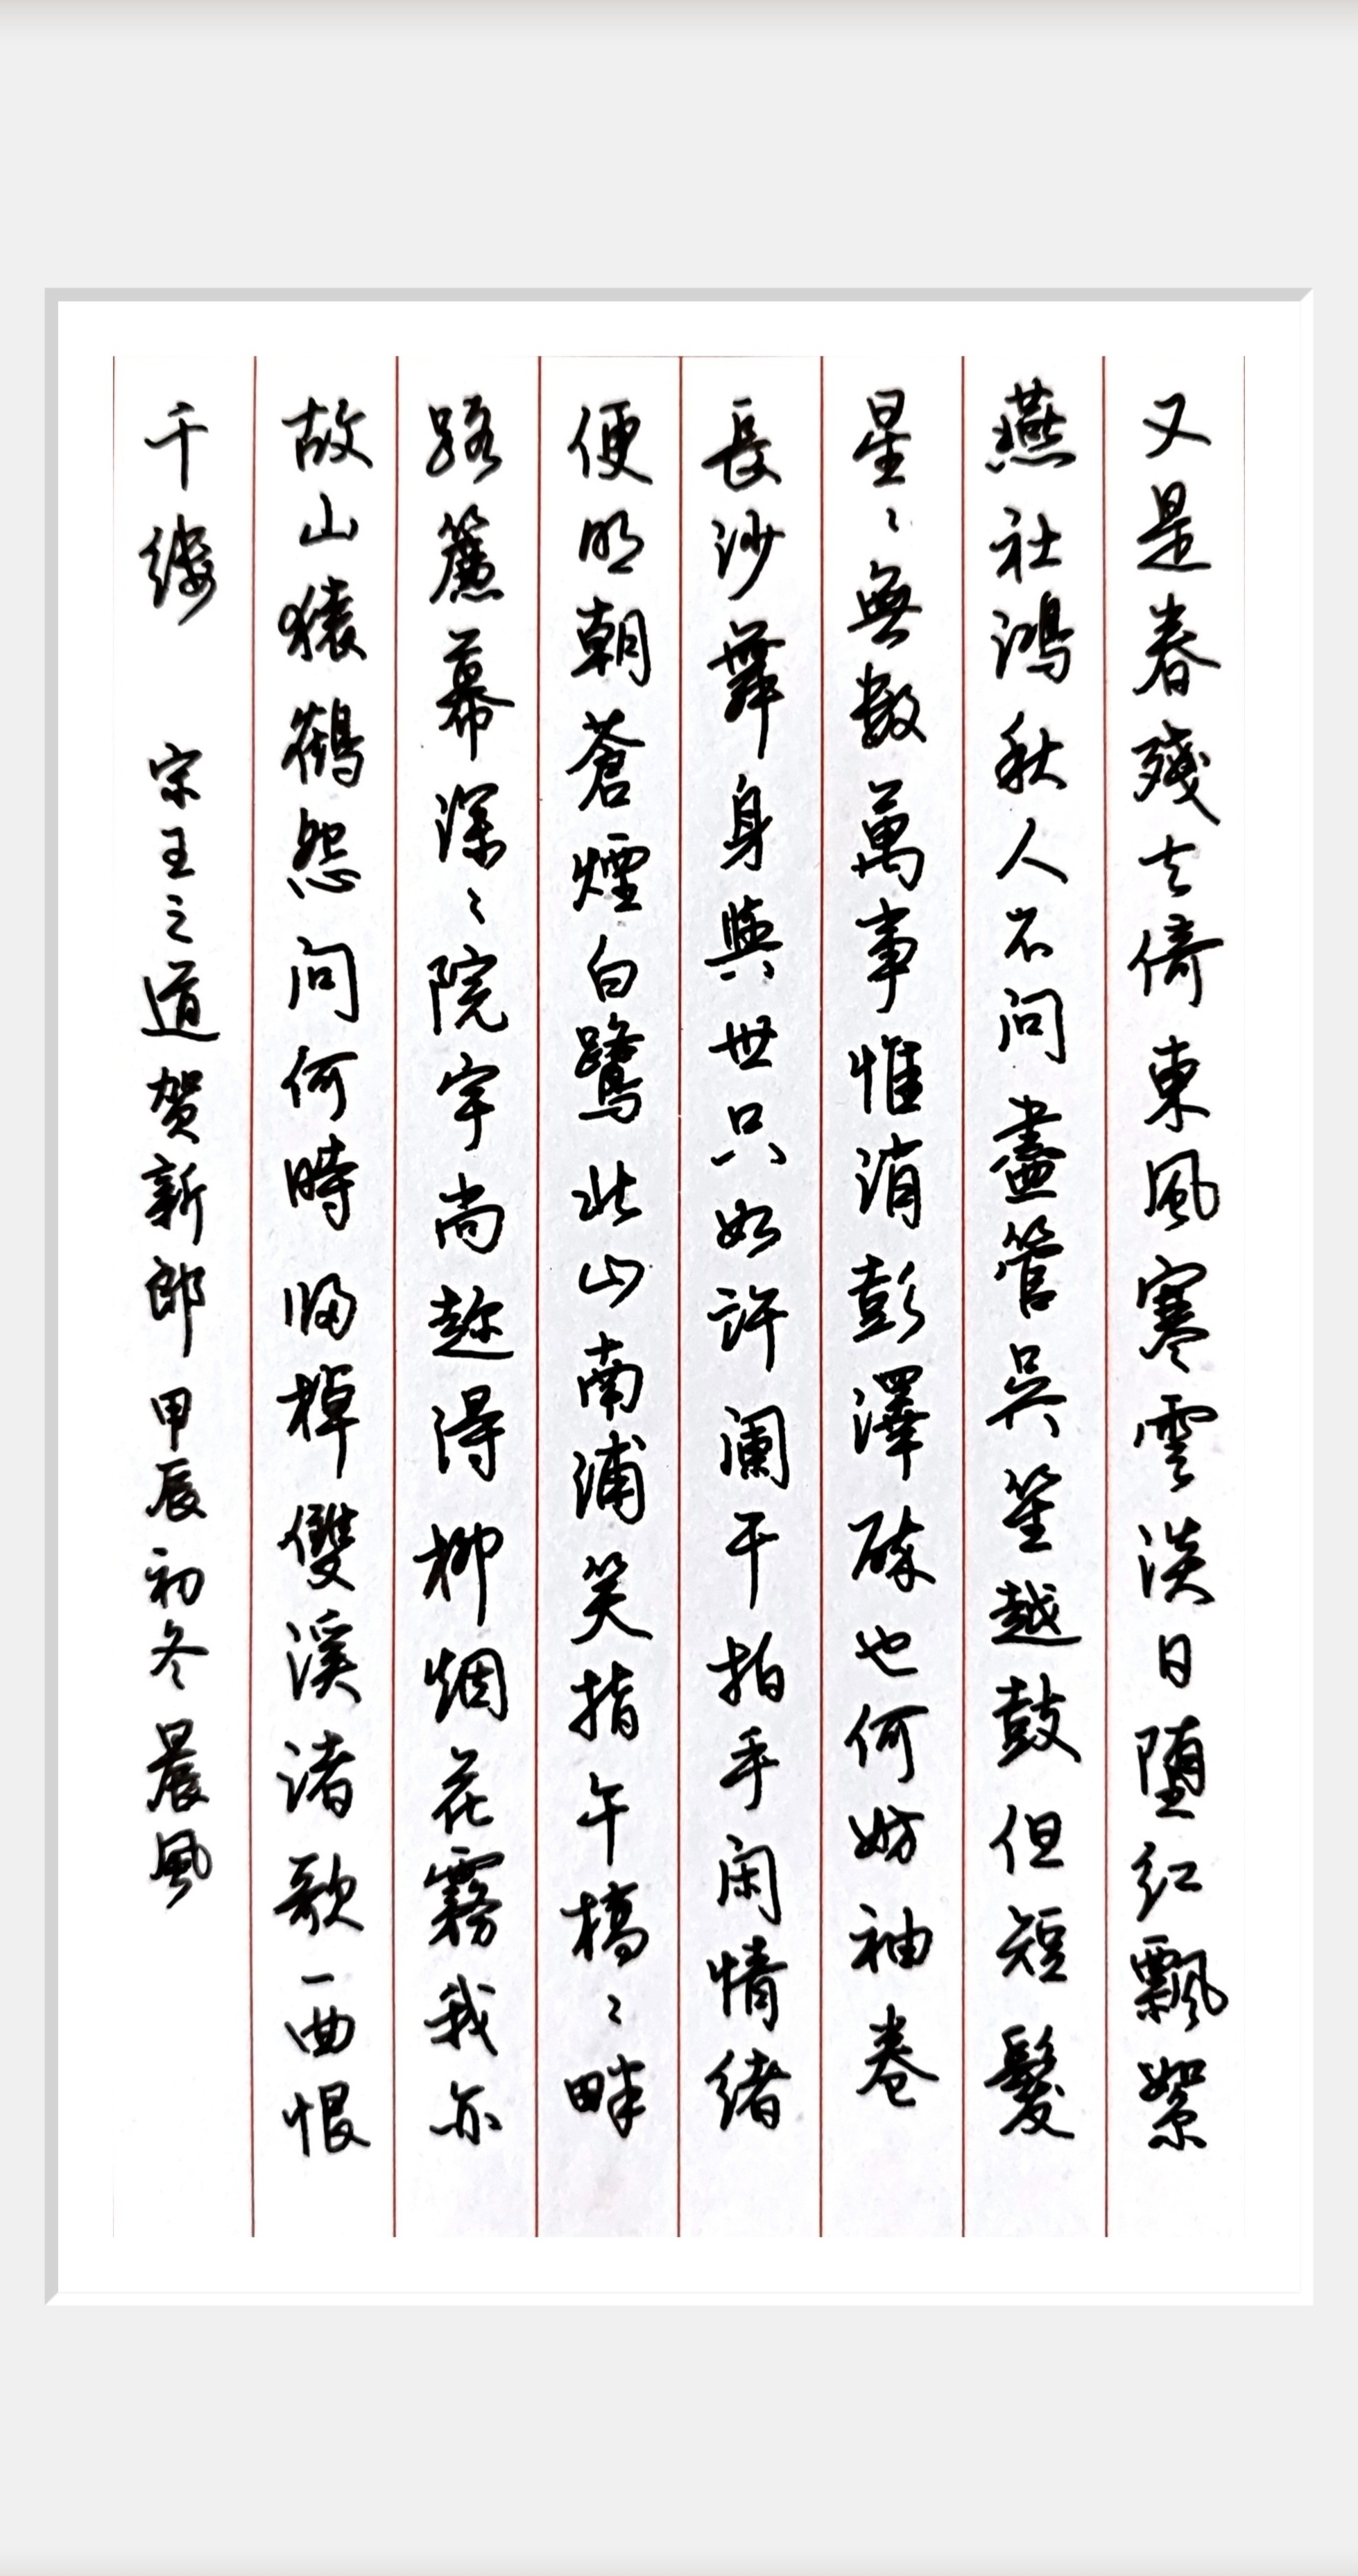 又是春殘去倚東風寒雲淡日堕红飄絮
燕社鴻秋人不问盡管吴笙越鼓但短髮
星〻無数萬事惟消彭澤醉也何妨袖卷
長沙舞身與世只如许阑干拍手闲情绪
便明朝蒼煙白鷺北山南浦笑指午橋〻畔
路簾幕深〻院宇尚趂得柳烟花霧我亦
故山猿鶴怨问何時歸棹雙溪渚歌一曲恨
千缕 宋王之道贺新郎甲辰初冬晨風